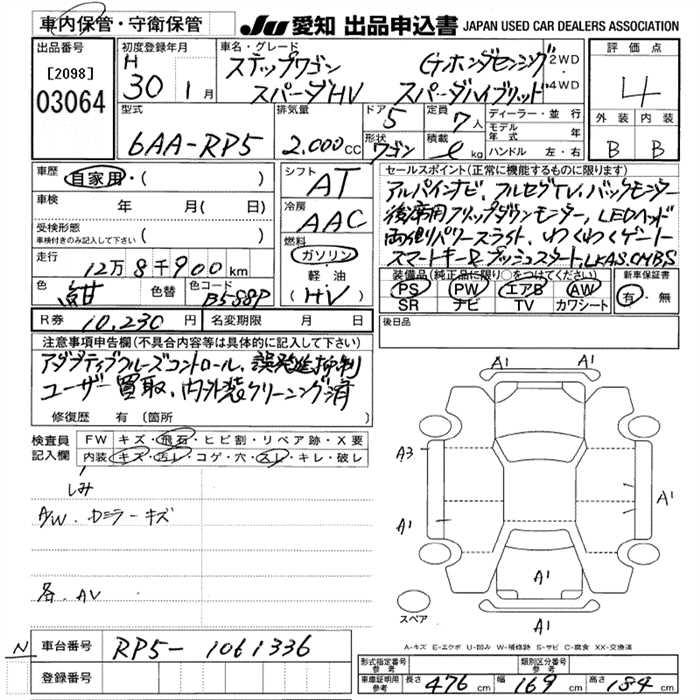 車内保管・守衛保管
JU 愛知 出品申込書 JAPAN USED CAR DEALERS ASSOCIATION
出品番号
[2098]
03064
初度登録年月
H
30 1月
車名・グレード
ステップワゴン Gホンダセンシング 2WD
スパーダHV スパーダハイブリッド 4WD
評価点
4
外装 内装
B B
型式
6AA-RP5
排気量
2.000cc
ドア
5
形状
ワゴン
定員
7人
積載
ℓ kg
ディーラー・並行
モデル年式 年
ハンドル 左・右
車歴
自家用・( )
車検 年 月( 日)
受検形態
車検付きのみ記入して下さい ( )
走行
12万8千900km
色 紺 色替 色コード B588P
シフト
AT
冷房
AAC
燃料
ガソリン
軽油
(HV)
セールスポイント(正常に機能するものに限ります)
アルパインナビ、フルセグTV、バックモニター
後席用フリップダウンモニター、LEDヘッド
両側パワースライド、わくわくゲート
スマートキー&プッシュスタート、LKAS、CMBS
装備品(純正品に限り○をつけてください)
PS PW エアB AW
SR ナビ TV カワシート
新車保証書
有・無
R券 10,230円 名変期限 月 日
後日品
注意事項申告欄(不具合内容等は具体的に記入して下さい)
アダプティブクルーズコントロール、誤発進抑制
ユーザー買取、内外装クリーニング済
修復歴 有(箇所 )
検査員記入欄
FW キズ・飛石・ヒビ割・リペア跡・X要
内装 キズ・汚レ・コゲ・穴・スレ・キレ・破レ
しみ
A/W、ドミラーキズ
各、AV
A1 A1
A3
A1
A1
A1
A1
スペア
A-キズ E-エクボ U-凹み W-補修跡 S-サビ C-腐食 XX-交換済
N
車台番号 RP5-1061336
登録番号
形式指定番号参考 類別区分番号参考
車庫証明用参考 長さ 476cm 幅 169cm 高さ 184cm